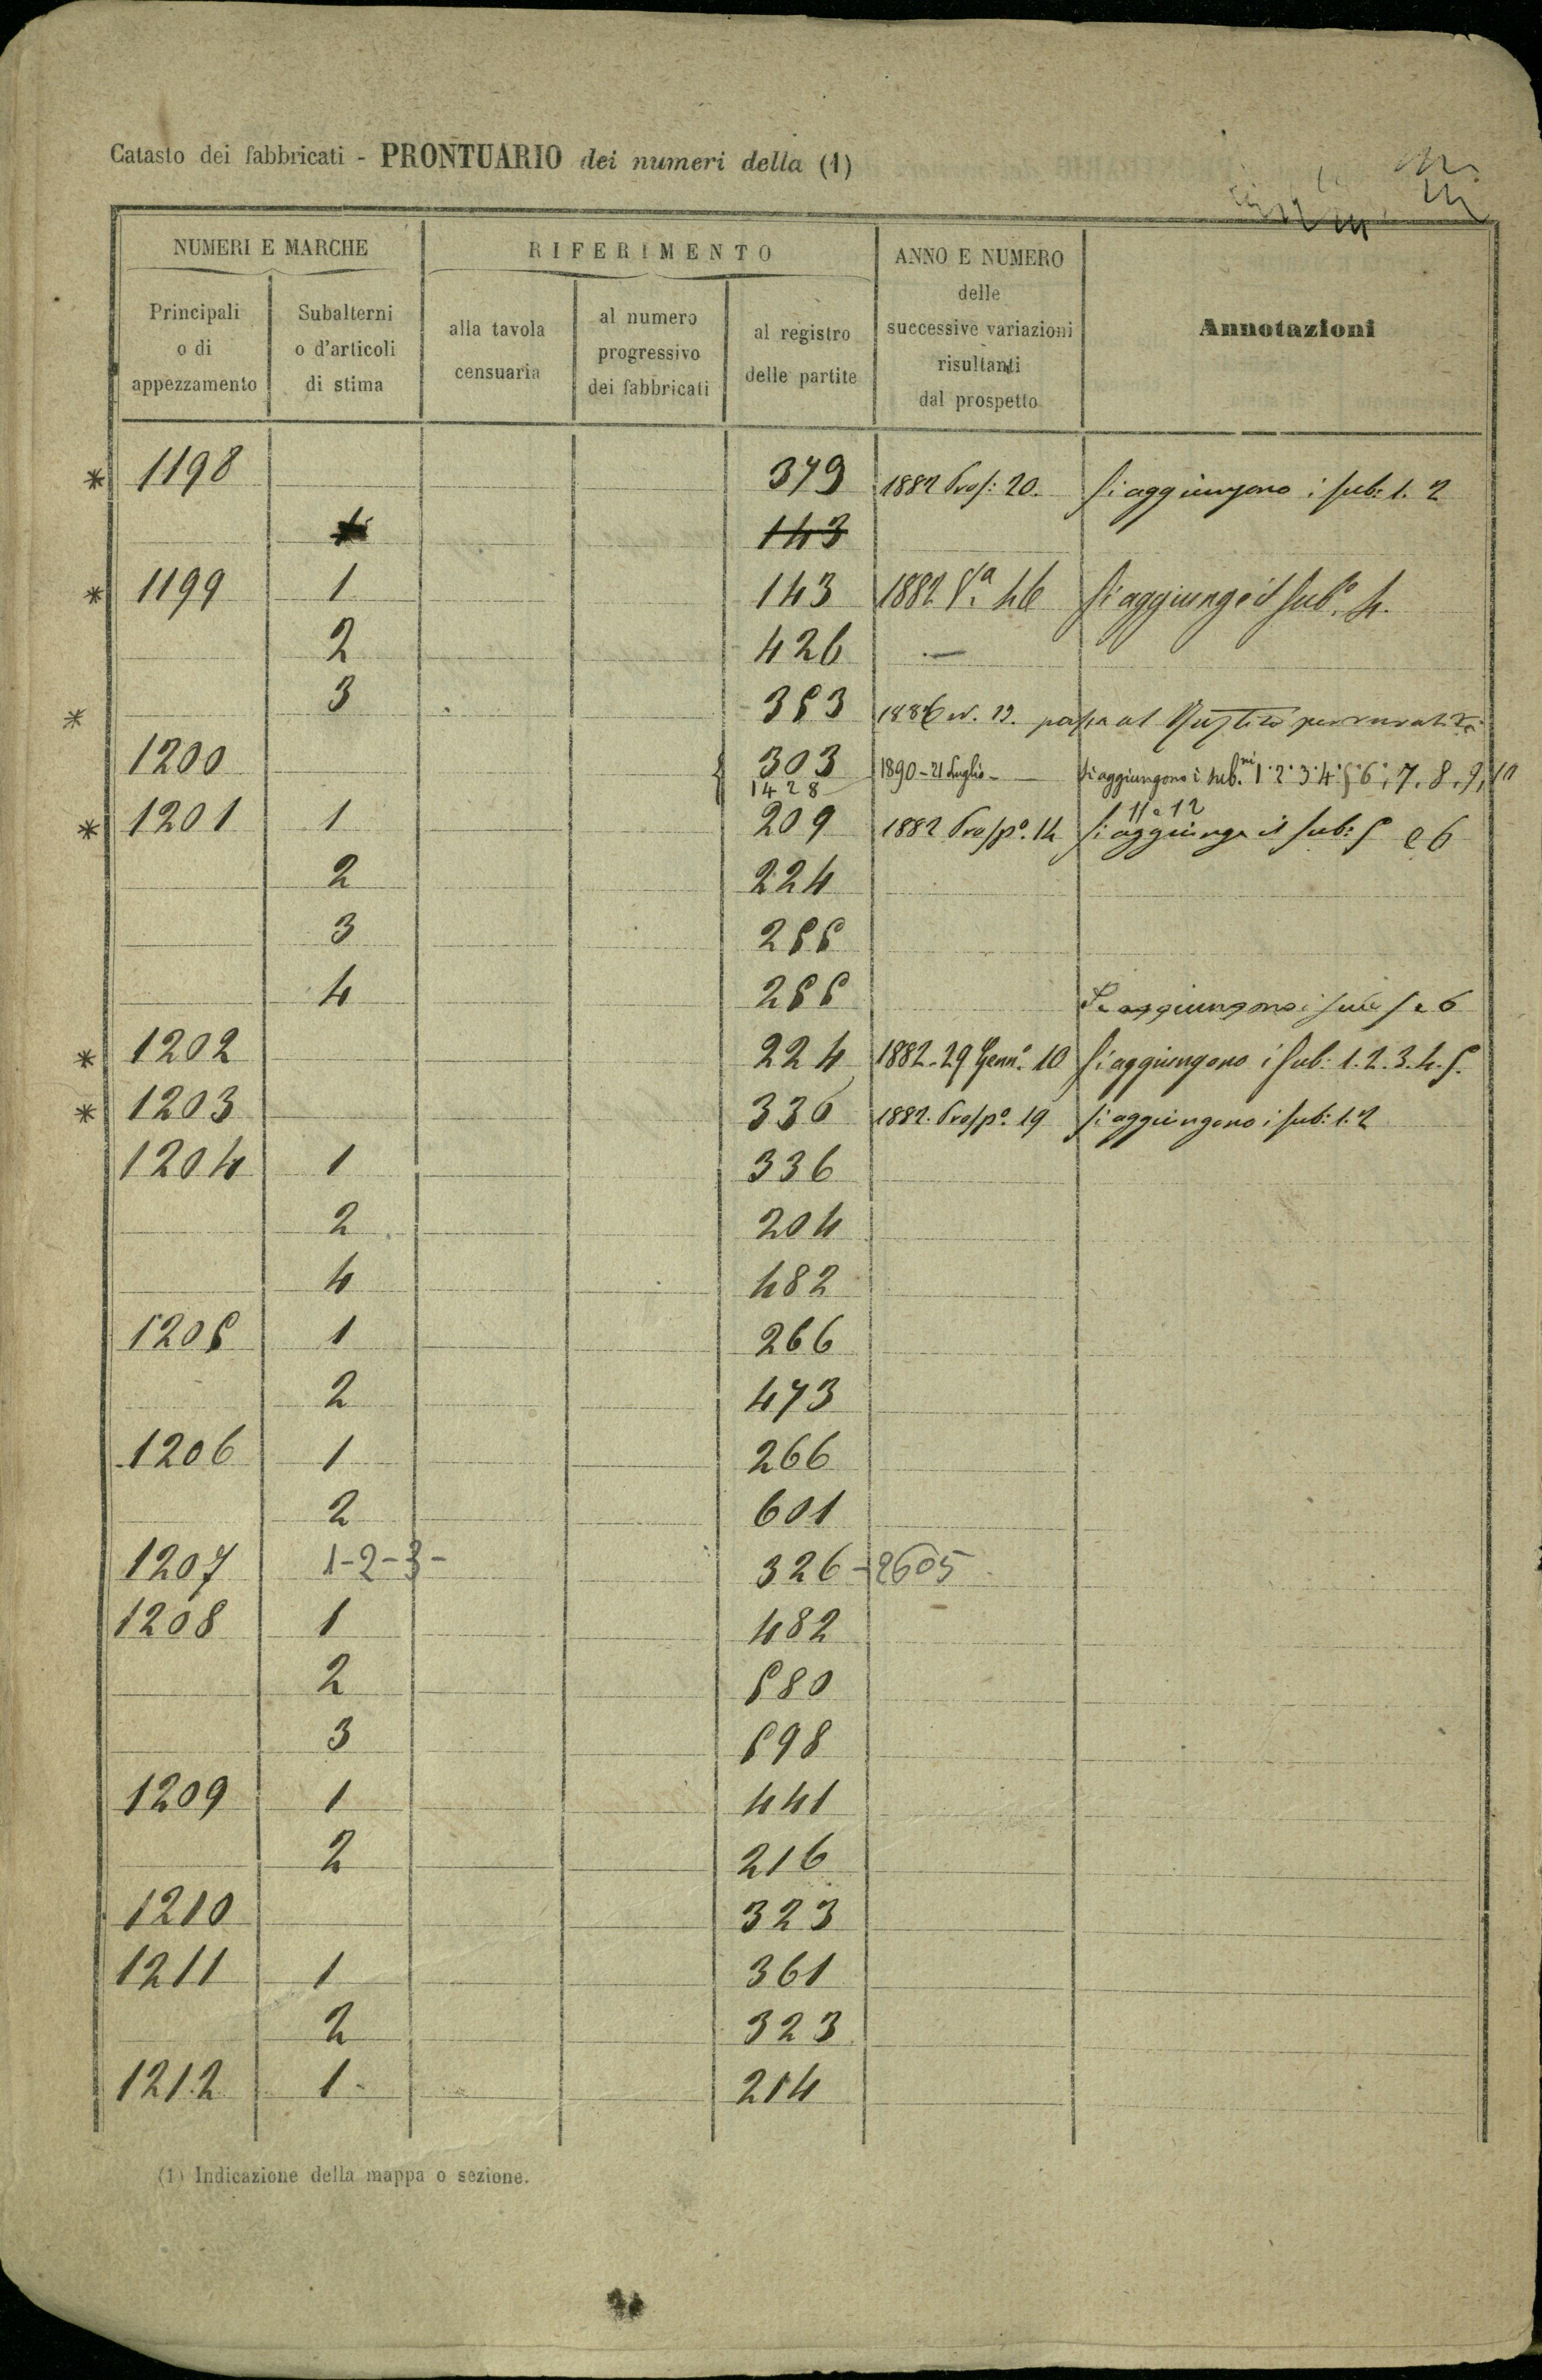 Catasto dei fabbricati - PRONTUARIO dei numeri della (1)
NUMERI E MARCHE
RIFERIMENTO
ANNO E NUMERO
delle
successive variazioni
risultanti
dal prospetto
Annotazioni
Principali
o di
appezzamento
Subalterni
o d'articoli
di stima
alla tavola
censuaria
al numero
progressivo
dei fabbricati
al registro
delle partite
* 1198 379 1882 Pros: 20. Si aggiungono i sub: 1. 2
143
* 1199 1 143 1882 46 Si aggiunge il sub.o 4.
2 426 —
3 353
* 1886 passa al
1200 303 1890 - 21 Luglio - Si aggiungono i sub.ni 1. 2. 3. 4. 5. 6. 7. 8. 9, 10
1428 11 e 12
* 1201 1 209 1882 Prosp.o 14 Si aggiunge il sub: 5 e 6
2 224
3 255
4 255 Si aggiungono i sub 5 e 6
* 1202 224 1882. 29 Genn.o 10 Si aggiungono i sub: 1. 2. 3. 4. 5.
* 1203 336 1882. Prosp.o 19 Si aggiungono i sub: 1. 2
1204 1 336
2 204
4 482
1205 1 266
2 473
1206 1 266
2 601
1207 1-2-3- 326 - 2605
1208 1 482
2 580
3 598
1209 1 441
2 216
1210 323
1211 1 361
2 323
1212 1 214
(1) Indicazione della mappa o sezione.